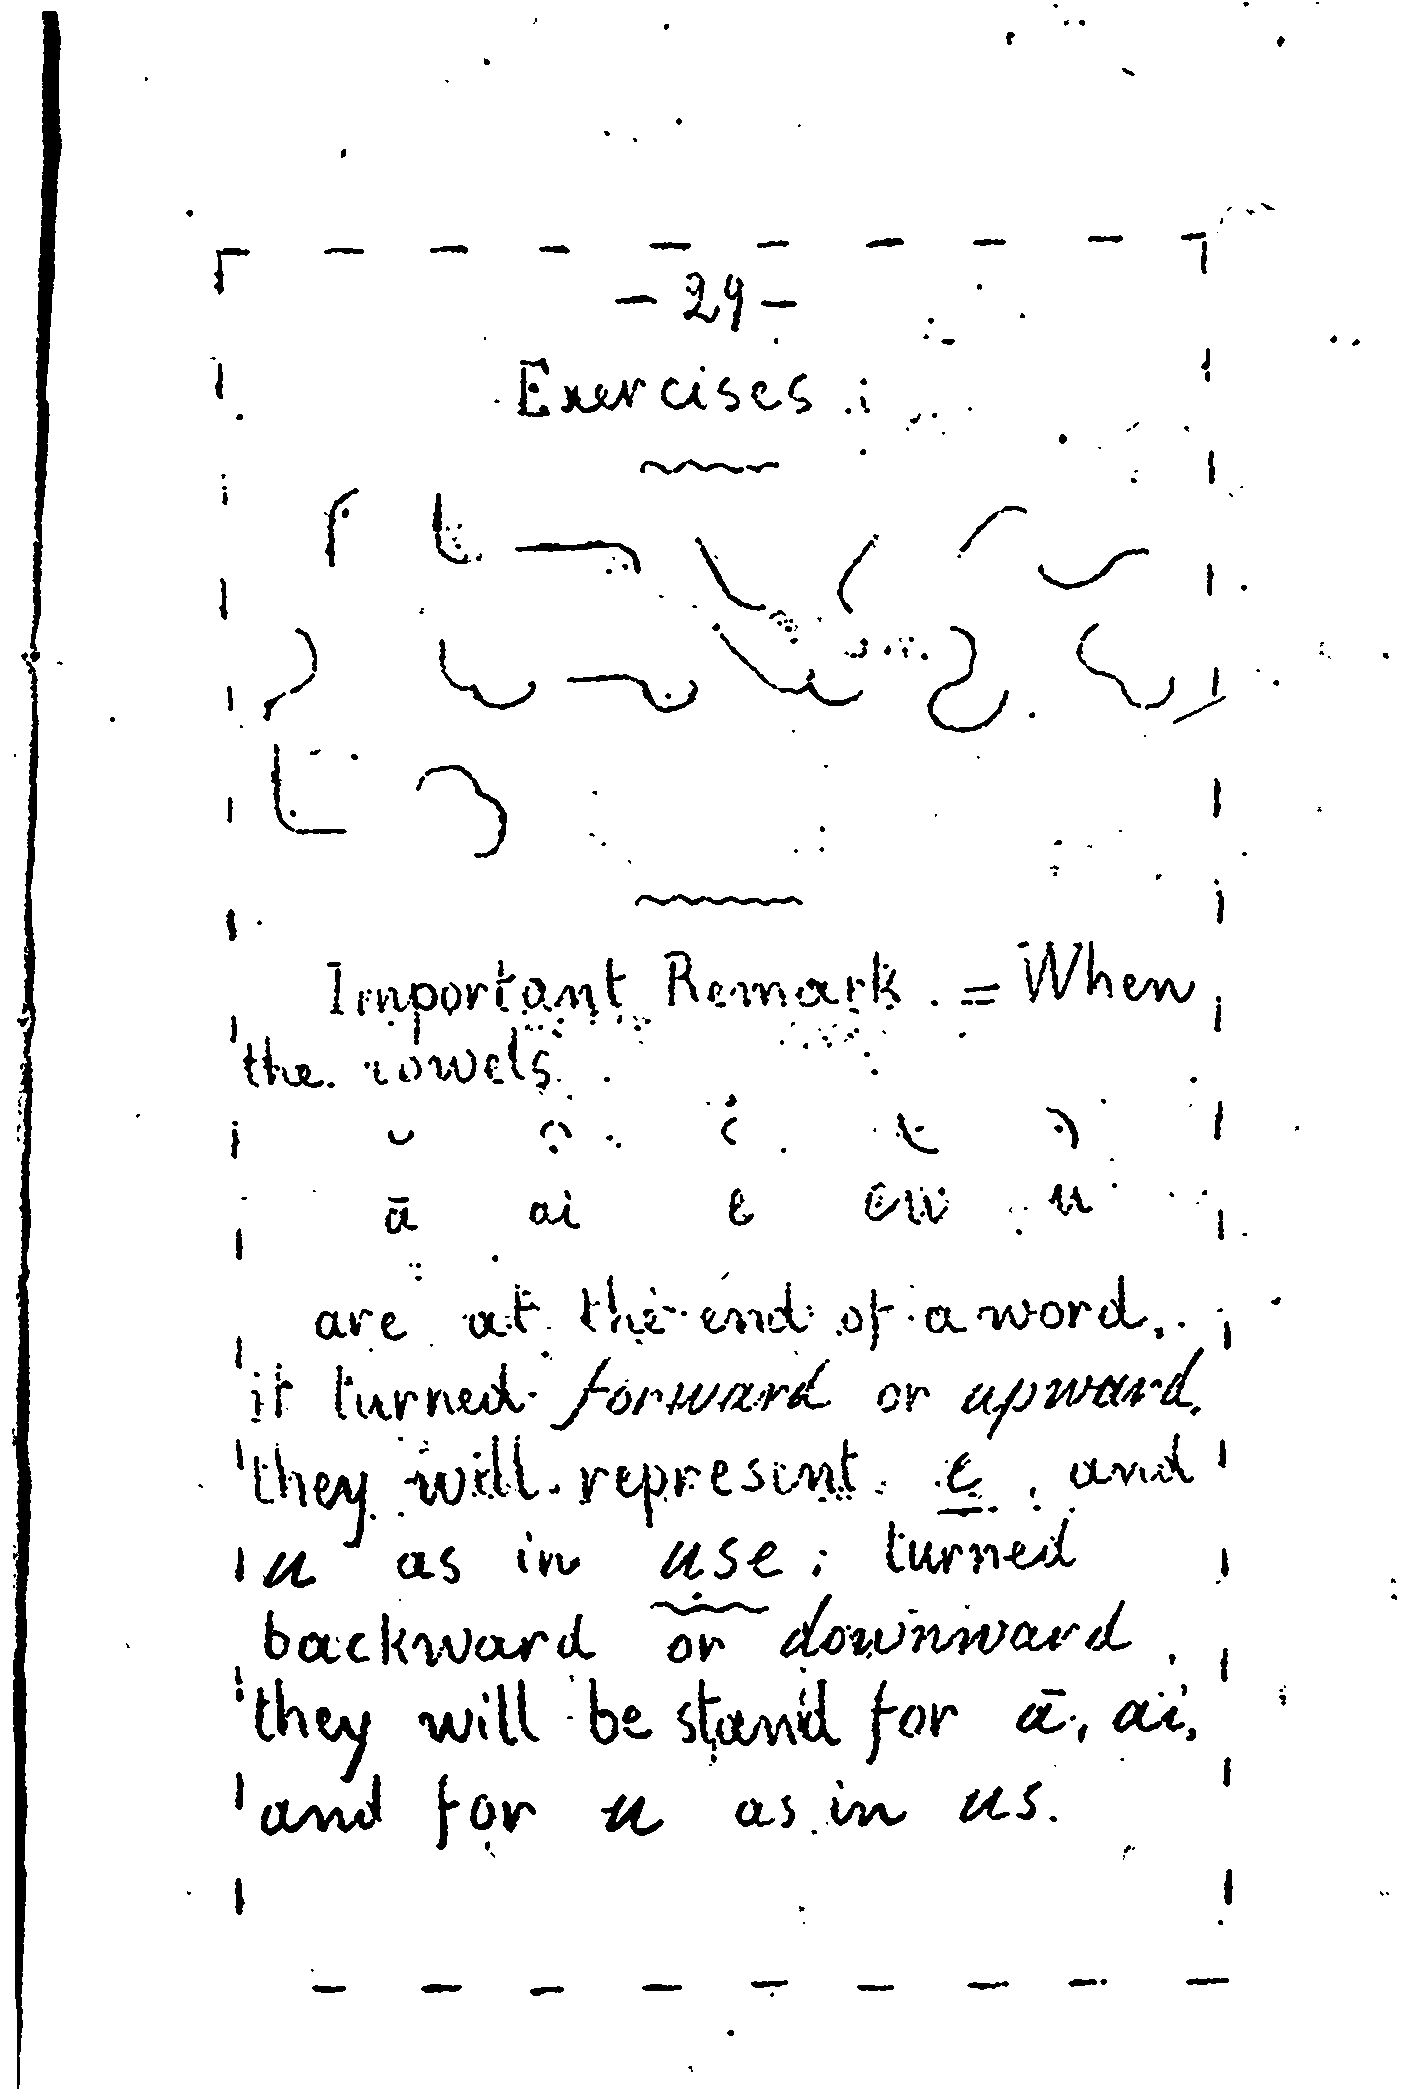 - 29 -
Exercises :
Important Remark . = When
the vowels
ā ai e ew u
are at the end of a word,
it turned forward or upward,
they will represent e , and
u as in use ; turned
backward or downward ,
they will be stand for ā, ai,
and for u as in us.